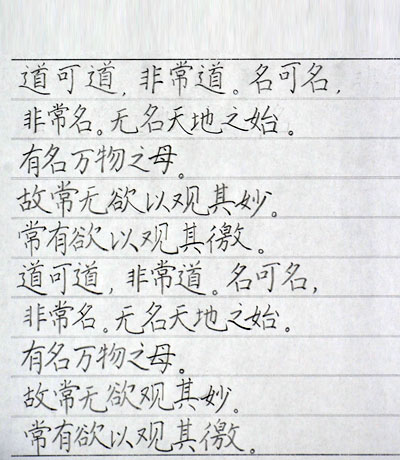 道可道，非常道。名可名，
非常名。无名天地之始。
有名万物之母。
故常无欲以观其妙。
常有欲以观其徼。
道可道，非常道。名可名，
非常名。无名天地之始。
有名万物之母。
故常无欲观其妙。
常有欲以观其徼。